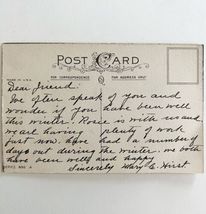 POST CARD
MADE IN U.S.A.
FOR CORRESPONDENCE
FOR ADDRESS ONLY
Dear Friend.
We often speak of you and
wonder if you have been well
this winter. Rosie is with us and
we art having plenty of work
just now. have had a number of
days out during the winter. we both
have been well and happy
Sincerely Mary E. Hirst